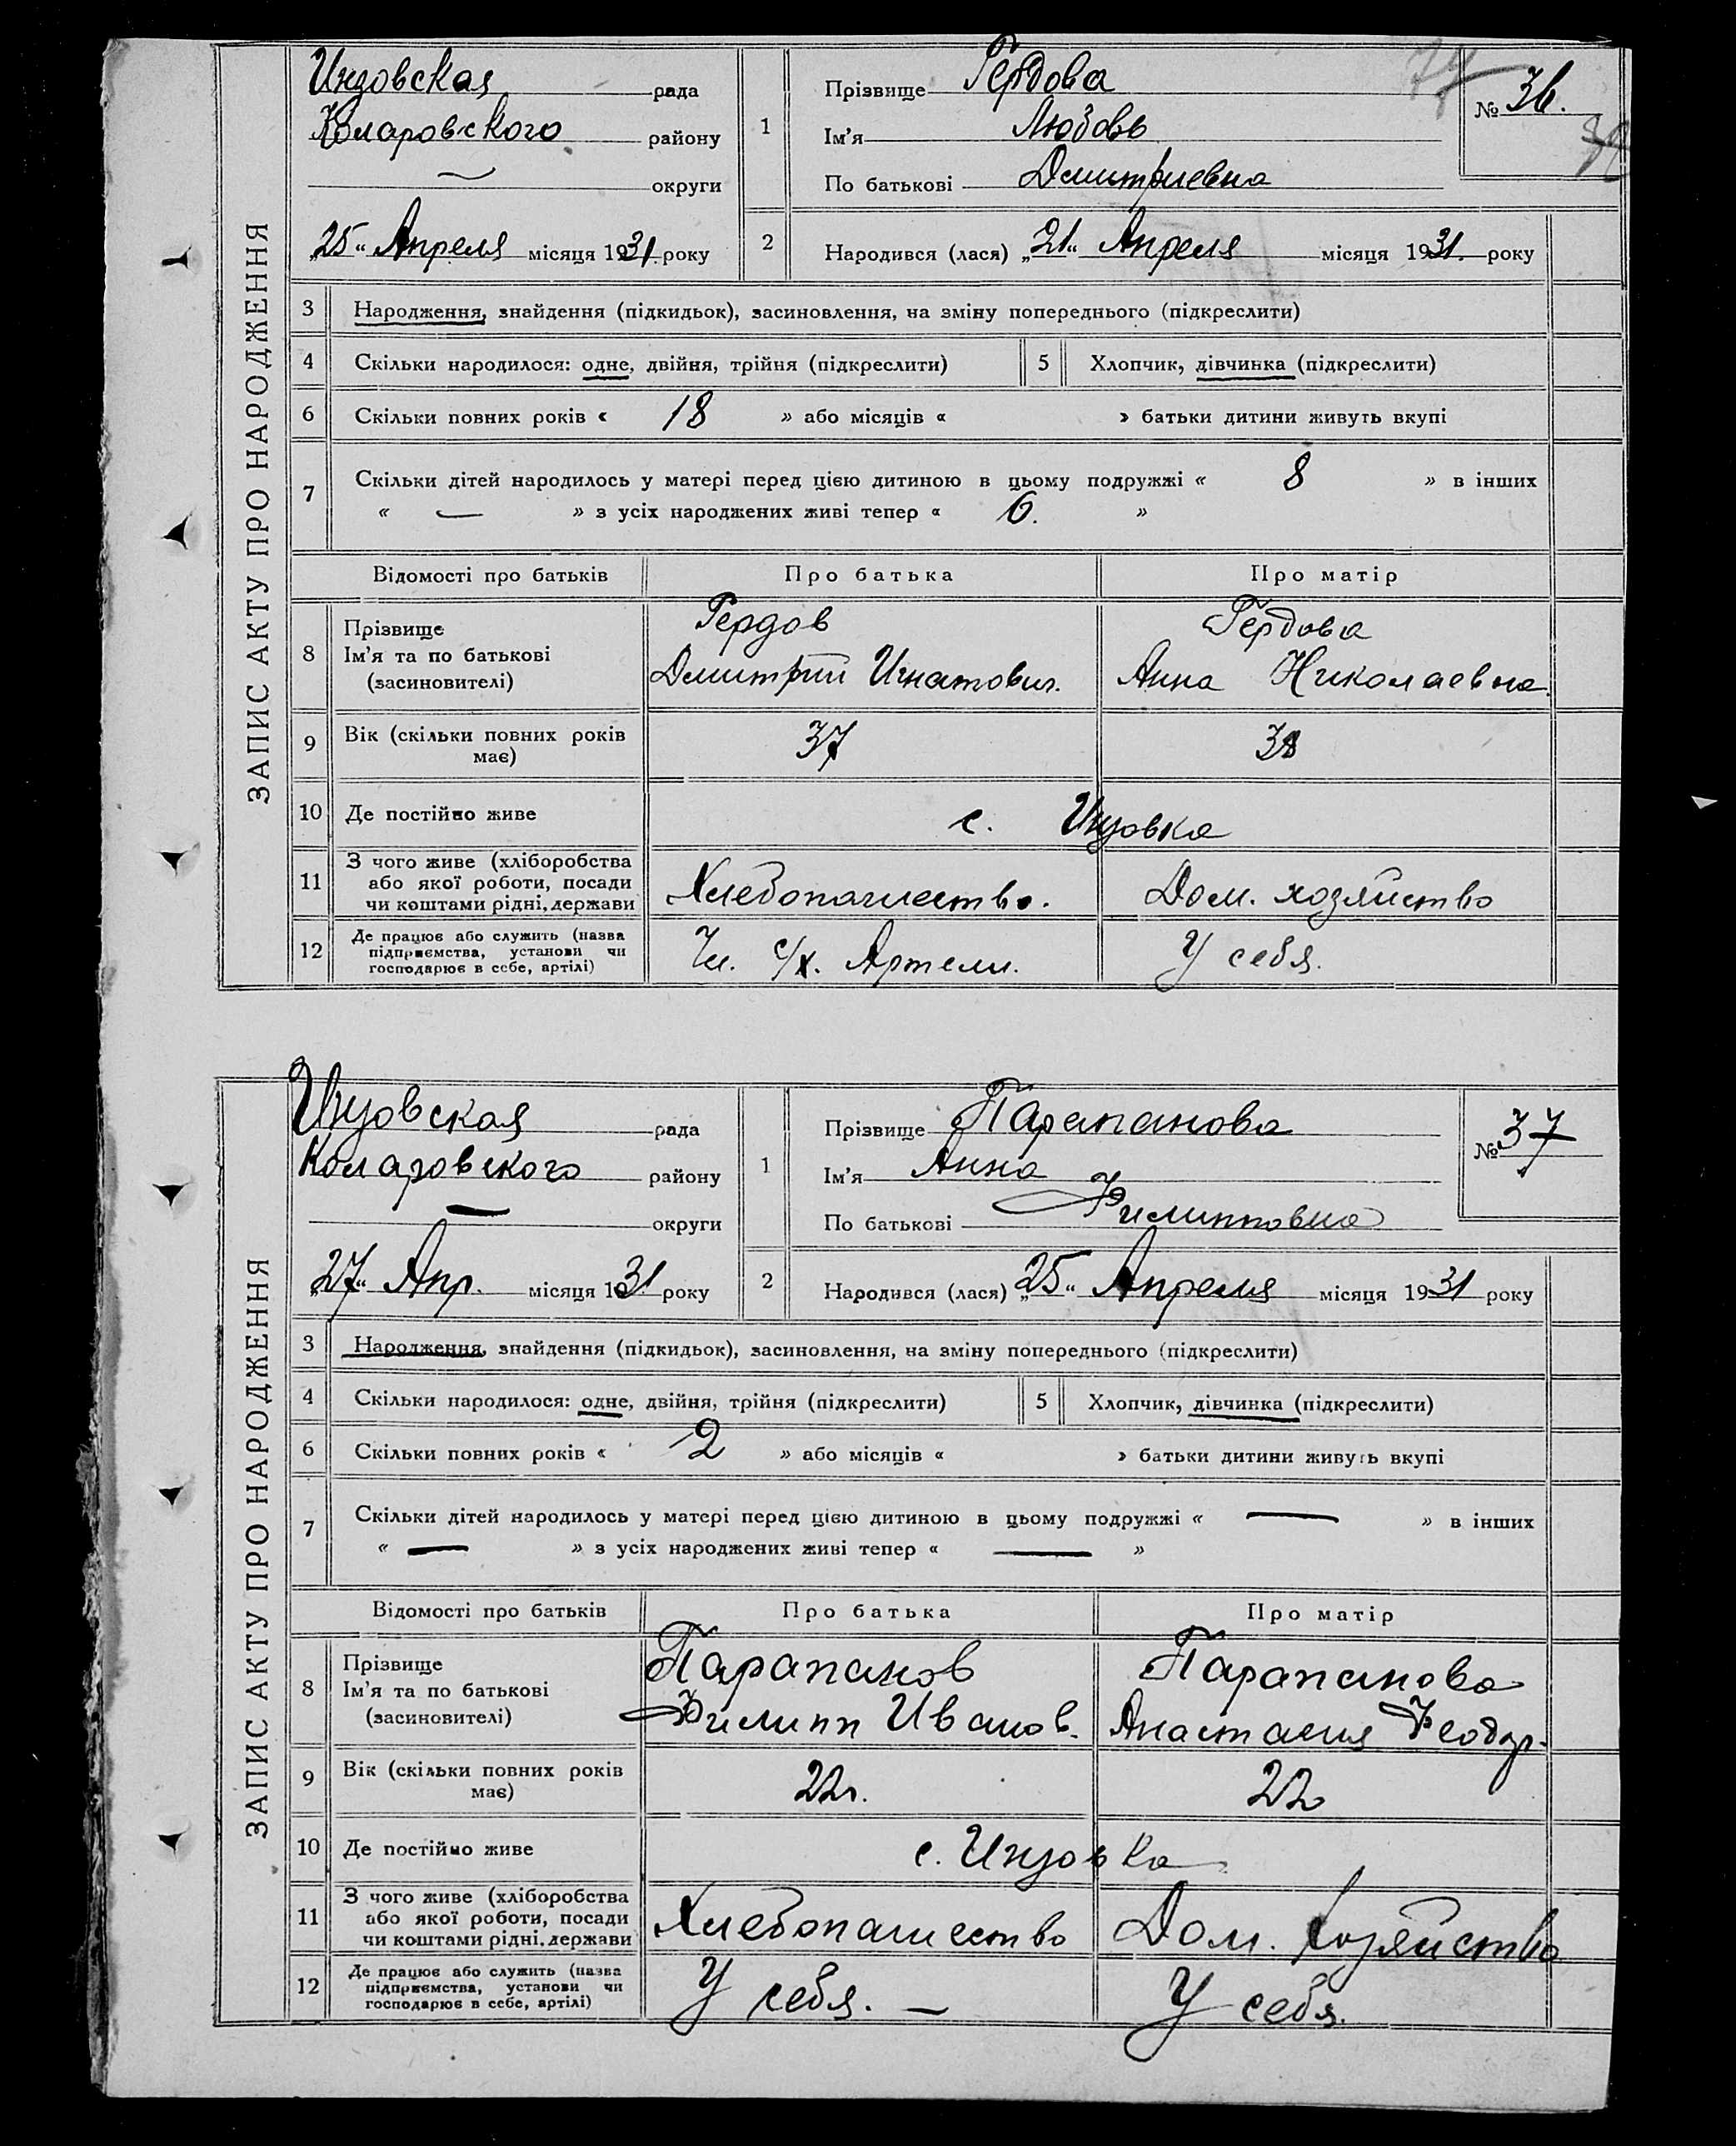 ЗАПИС АКТУ ПРО НАРОДЖЕННЯ
Инзовская рада
Коларовского району
— округи
„25“ Апреля місяця 1931 року
1 Прізвище Гердова
Ім’я Любовь
По батькові Дмитриевна
№ 36.
2 Народився (лася) „21“ Апреля місяця 1931. року
3 Народження, знайдення (підкидьок), засиновлення, на зміну попереднього (підкреслити)
4 Скільки народилося: одне, двійня, трійня (підкреслити) 5 Хлопчик, дівчинка (підкреслити)
6 Скільки повних років « 18 » або місяців « » батьки дитини живуть вкупі
7 Скільки дітей народилось у матері перед цією дитиною в цьому подружжі « 8 » в інших
« — » з усіх народжених живі тепер « 6. »
Відомості про батьків Про батька Про матір
8 Прізвище Гердов Гердова
Ім’я та по батькові Дмитрий Игнатович. Анна Николаевна.
(засиновителі)
9 Вік (скільки повних років має) 37 38
10 Де постійно живе с. Инзовка
11 З чого живе (хліборобства
або якої роботи, посади
чи коштами рідні, держави Хлебопашество. Дом. хозяйство
12 Де працює або служить (назва
підприємства, установи чи
господарює в себе, артілі) Чл. с/х. Артели. У себя.
ЗАПИС АКТУ ПРО НАРОДЖЕННЯ
Инзовская рада
Коларовского району
— округи
„27“ Апр. місяця 1931 року
1 Прізвище Парапанова
Ім’я Анна
По батькові Филипповна
№ 37
2 Народився (лася) „25“ Апреля місяця 1931 року
3 Народження, знайдення (підкидьок), засиновлення, на зміну попереднього (підкреслити)
4 Скільки народилося: одне, двійня, трійня (підкреслити) 5 Хлопчик, дівчинка (підкреслити)
6 Скільки повних років « 2 » або місяців « » батьки дитини живуть вкупі
7 Скільки дітей народилось у матері перед цією дитиною в цьому подружжі « — » в інших
« — » з усіх народжених живі тепер « — »
Відомості про батьків Про батька Про матір
8 Прізвище Парапанов Парапанова
Ім’я та по батькові Филипп Иванов. Анастасия Феодор.
(засиновителі)
9 Вік (скільки повних років має) 22г. 22
10 Де постійно живе с. Инзовка
11 З чого живе (хліборобства
або якої роботи, посади
чи коштами рідні, держави Хлебопашество Дом. Хозяйство
12 Де працює або служить (назва
підприємства, установи чи
господарює в себе, артілі) У себя. — У себя.